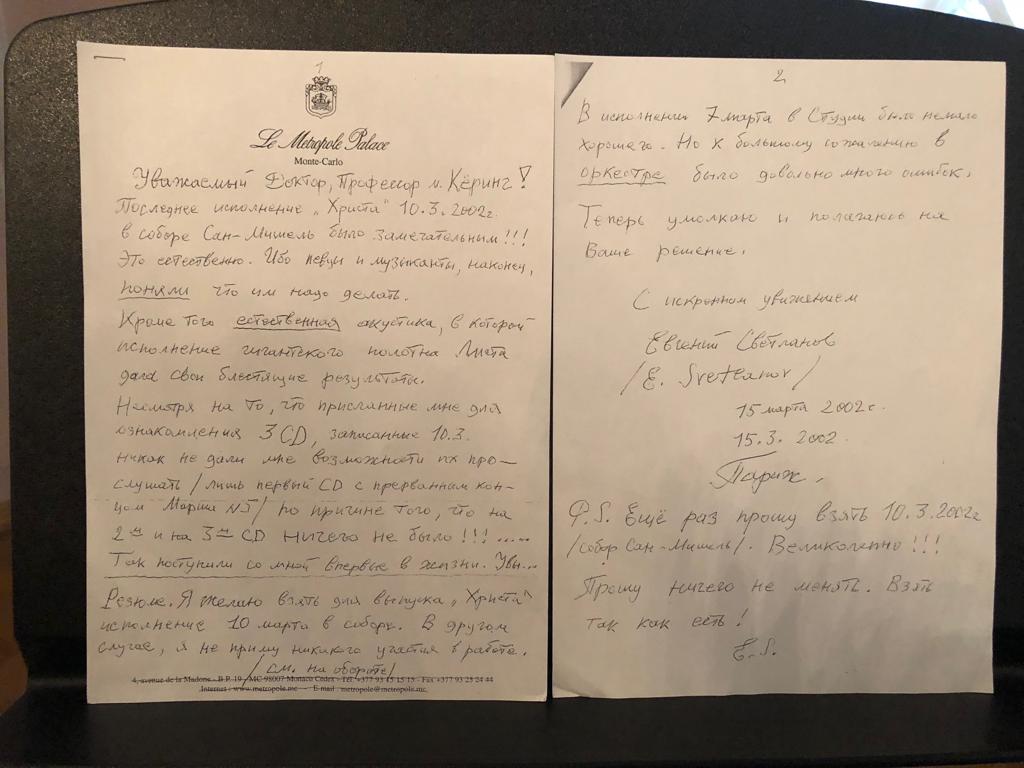 1
Le Metropole Palace
Monte-Carlo
Уважаемый Доктор, Профессор м. Кёринг!
Последнее исполнение „Христа" 10.3.2002г.
в соборе Сан-Мишель было замечательным!!!
Это естественно. Ибо певцы и музыканты, наконец,
поняли что им надо делать.
Кроме того естественная акустика, в которой
исполнение гигантского полотна Листа
дала свои блестящие результаты.
Несмотря на то, что присланные мне для
ознакомления 3 CD, записанные 10.3.
никак не дали мне возможности их про-
слушать /лишь первый CD с прерванным кон-
цом Марша №5/ по причине того, что на
2м и на 3м CD ничего не было!!!.....
Так поступили со мной впервые в жизни. Увы...
Резюме. Я желаю взять для выпуска „Христа"
исполнение 10 марта в соборе. В другом
случае, я не приму никакого участия в работе.
/см. на обороте/
4, avenue de la Madone - B.P. 19 - MC 98007 Monaco Cedex - Tél. +377 93 15 15 15 - Fax +377 93 25 24 44
Internet : www.metropole.mc - E-mail : metropole@metropole.mc
2
В исполнении 7 марта в Студии было немало
хорошего. Но к большому сожалению в
оркестре было довольно много ошибок.
Теперь умолкаю и полагаюсь на
Ваше решение.
С искренним уважением
Евгений Светланов
/E. Svetlanov/
15 марта 2002г.
15.3. 2002.
Париж.
P.S. Ещё раз прошу взять 10.3.2002г
/собор Сан-Мишель/. Великолепно!!!
Прошу ничего не менять. Взять
так как есть!
E.S.